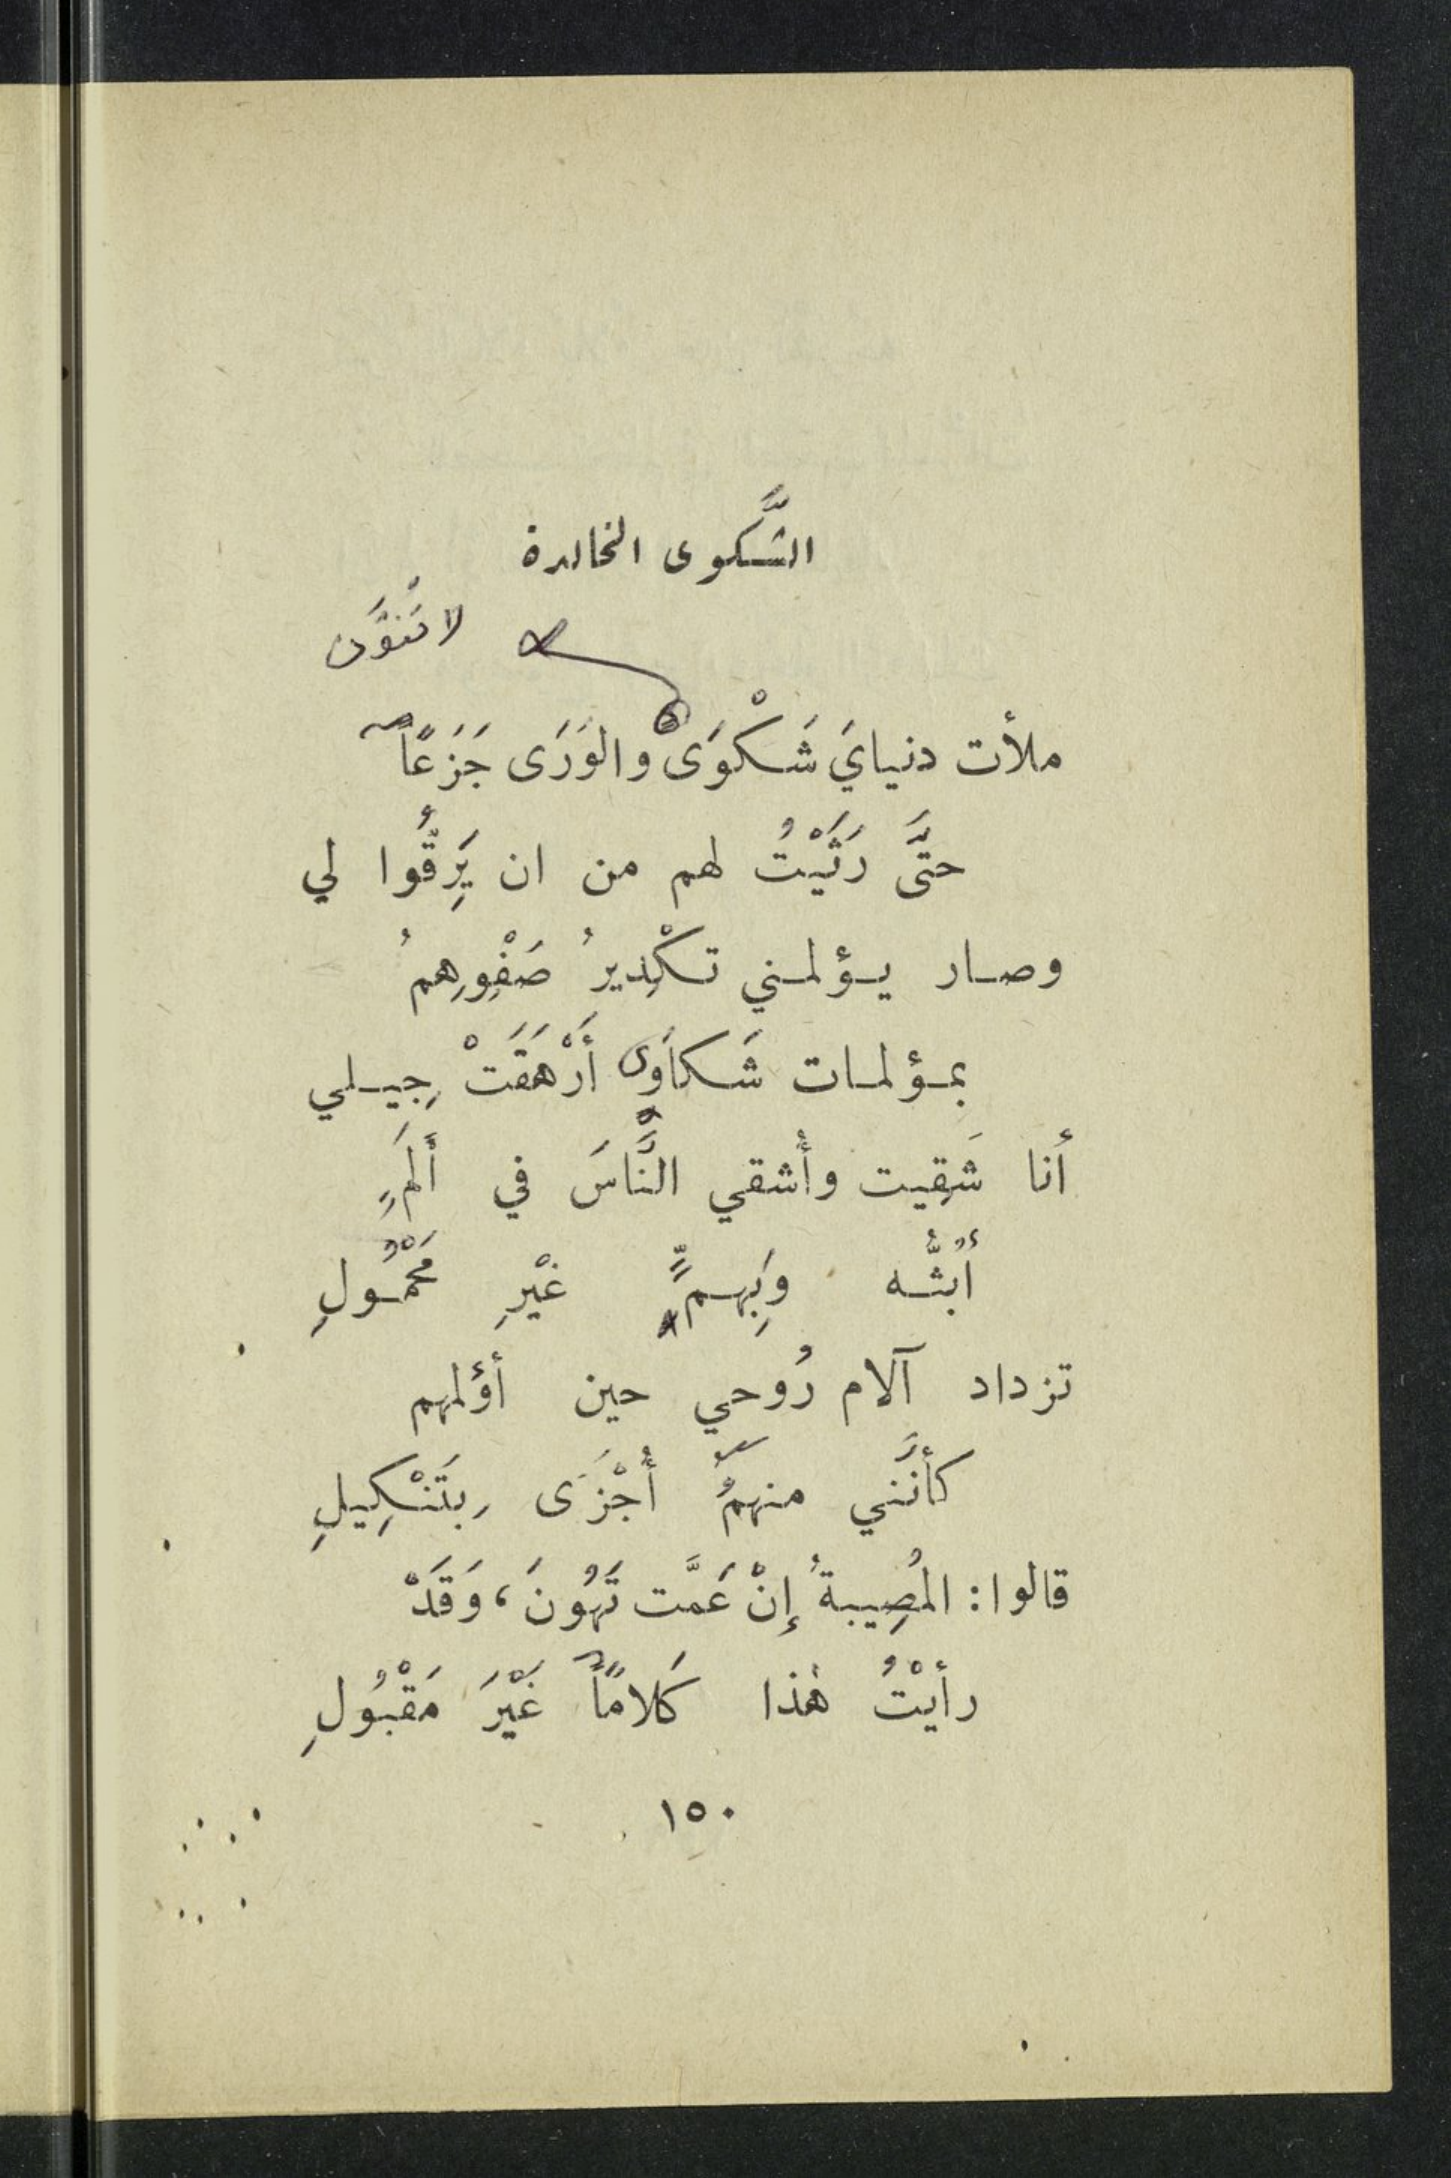 الشَّكوى الخالدة
لا تُنوَّن
ملأت دنيايَ شَكْوَى والوَرَى جَزَعاً
حتَّى رَثَيْتُ لهم من ان يَرِقُّوا لي
وصار يؤلمني تكْدِيرُ صَفْوِهِمُ
بمؤلمات شَكاوَى أَرْهَقَتْ جِيلي
أنا شَقِيت وأشقي النَّاسَ في أَلَمٍ
أبثُّه وَبِهمٍّ غيْرِ مَحْمُولِ
تزداد آلام رُوحي حين أؤلمهم
كأنَّني منهمُ أُجْزَى بِتَنْكِيلِ
قالوا: المُصِيبةُ إنْ عَمَّت تَهُونَ، وَقَدْ
رأيْتُ هٰذا كَلاماً غَيْرَ مَقْبُولِ
١٥٠